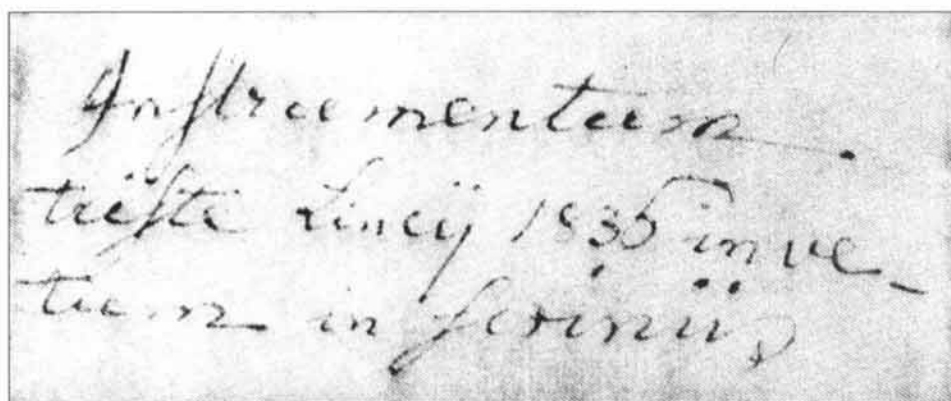 Instrumentum.
triste Lincij 1835 inve-
tum in scriniis